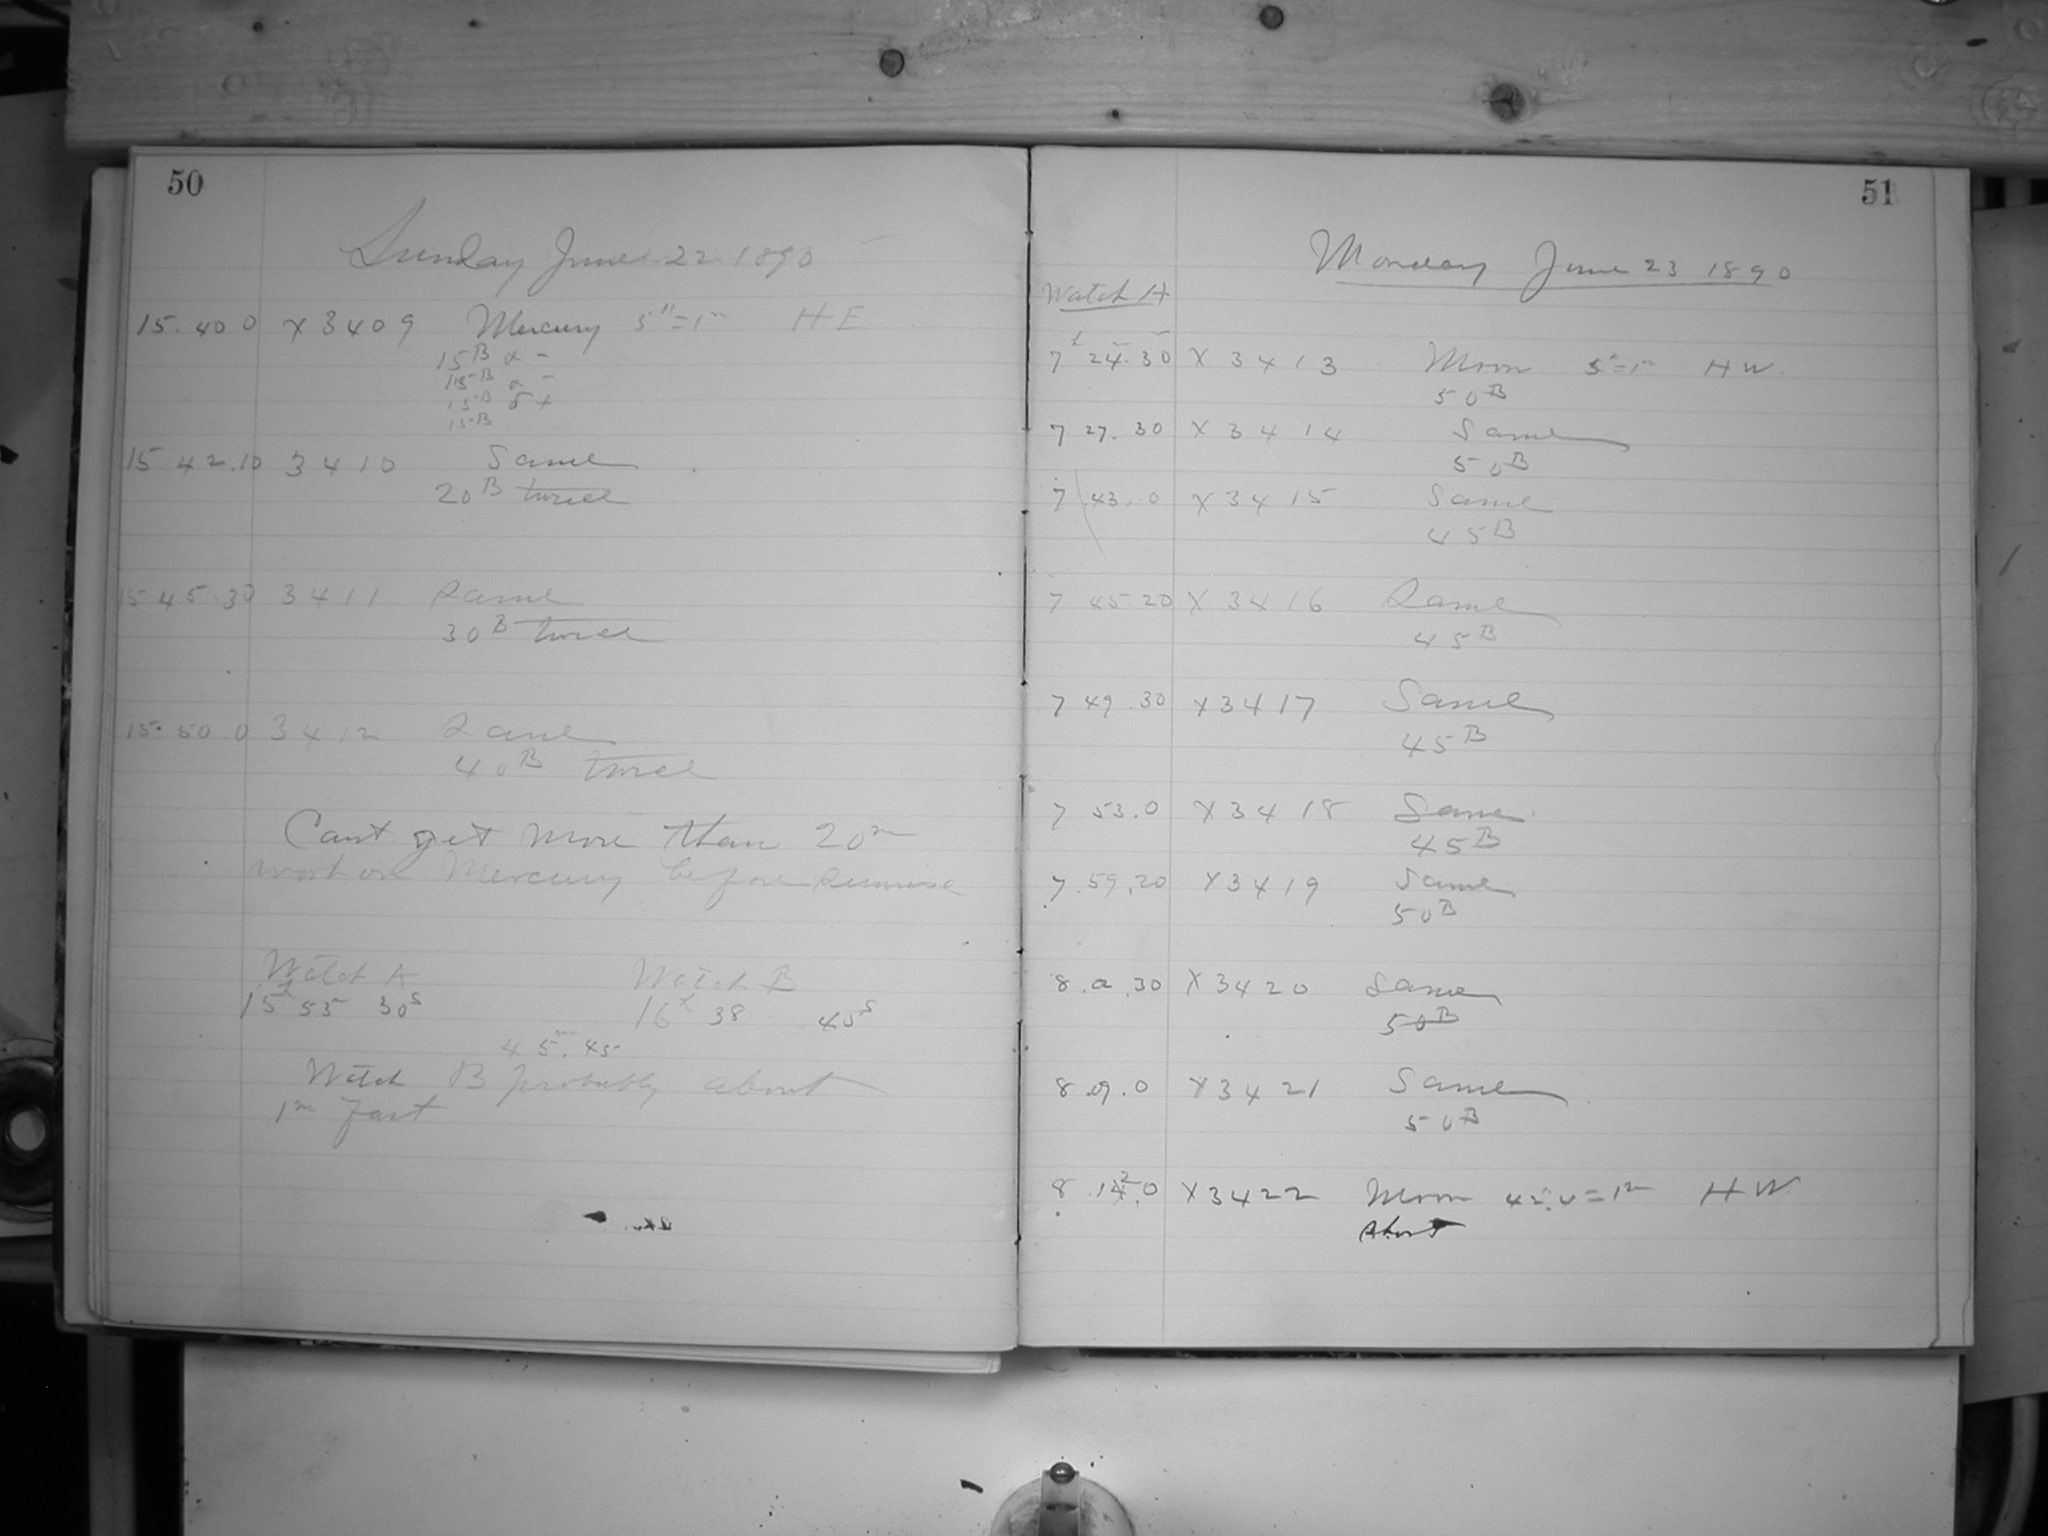 50
Sunday June 22 1890
15.40 0 X3409 Mercury 5"=1m HE
15B α -
15B α -
15B δ +
15B
15 42.10 3410 Same
20B twice
15 45.30 3411 Same
30B twice
15.50 0 3412 Same
40B twice
Cant get more than 20m
work on Mercury before sunrise
Watch A Watch B
15h 55 30s 16h 38 45s
45m.45
Watch B probably about
1m fast
51
Monday June 23 1890
Watch A
7h 24.30 X3413 Moon 5"=1m HW.
50B
7 27.30 X3414 Same
50B
7 43.0 X3415 Same
45B
7 45.20 X3416 Same
45B
7 49.30 X3417 Same
45B
7 53.0 X3418 Same
45B
7.59.20 X3419 Same
50B
8.2.30 X3420 Same
50B
8.9.0 X3421 Same
50B
8.12.0 X3422 Moon =1m HW